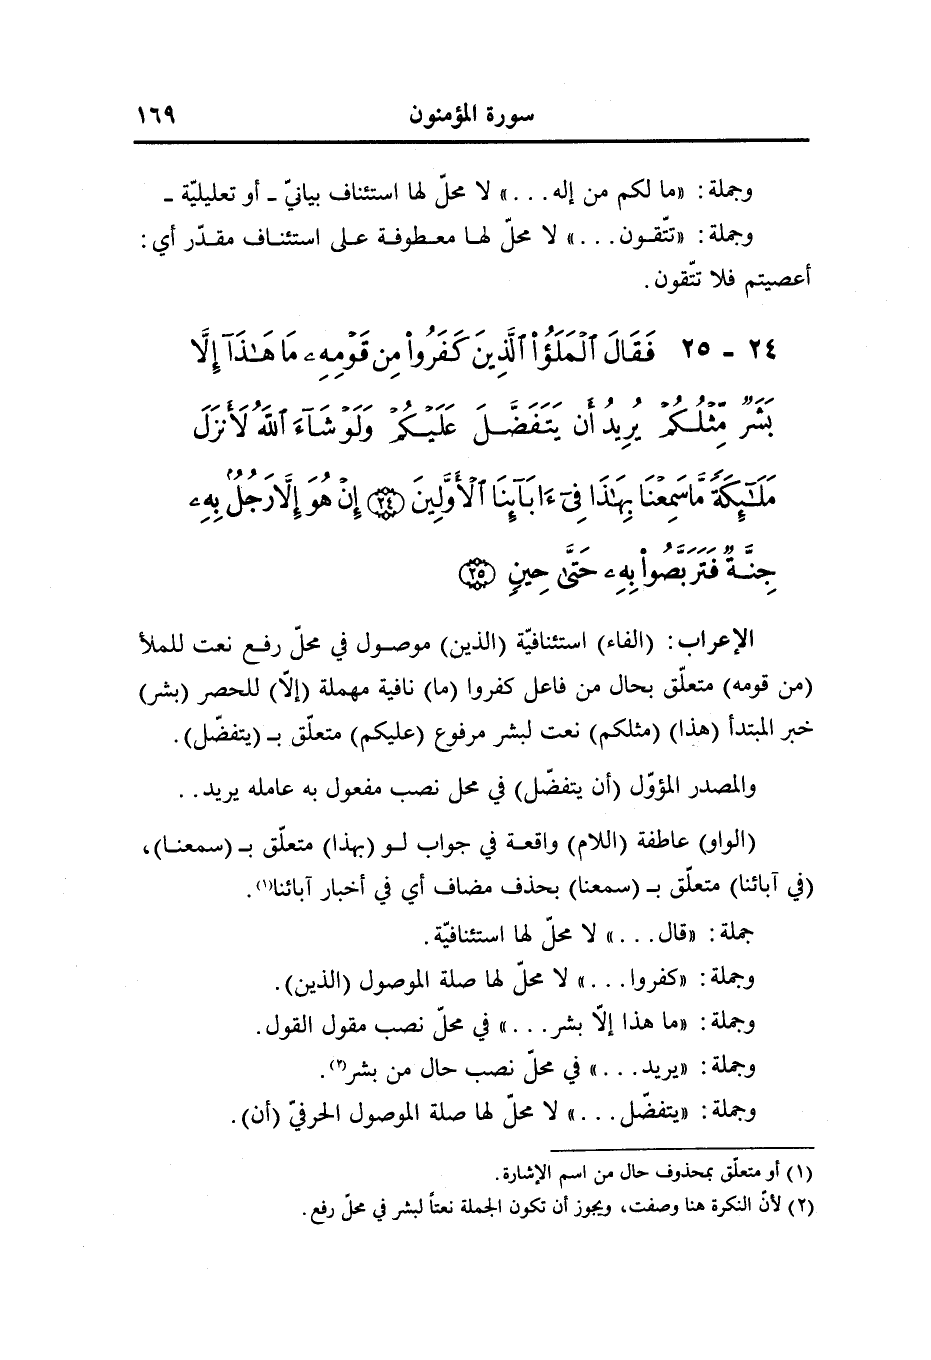 سورة المؤمنون ١٦٩
وجملة: «ما لكم من إله...» لا محلّ لها استئناف بيانيّ ـ أو تعليليّة ـ
وجملة: «تتّقون...» لا محلّ لها معطوفة على استئناف مقدّر أي:
أعصيتم فلا تتّقون.
٢٤ - ٢٥ فَقَالَ ٱلْمَلَؤُا۟ ٱلَّذِينَ كَفَرُوا۟ مِن قَوْمِهِۦ مَا هَـٰذَآ إِلَّا
بَشَرٌ مِّثْلُكُمْ يُرِيدُ أَن يَتَفَضَّلَ عَلَيْكُمْ وَلَوْ شَآءَ ٱللَّهُ لَأَنزَلَ
مَلَـٰٓئِكَةً مَّا سَمِعْنَا بِهَـٰذَا فِىٓ ءَابَآئِنَا ٱلْأَوَّلِينَ ﴿٢٤﴾ إِنْ هُوَ إِلَّا رَجُلٌۢ بِهِۦ
جِنَّةٌ فَتَرَبَّصُوا۟ بِهِۦ حَتَّىٰ حِينٍ ﴿٢٥﴾
الإعراب: (الفاء) استئنافيّة (الذين) موصول في محلّ رفع نعت للملأ
(من قومه) متعلّق بحال من فاعل كفروا (ما) نافية مهملة (إلّا) للحصر (بشر)
خبر المبتدأ (هذا) (مثلكم) نعت لبشر مرفوع (عليكم) متعلّق بـ (يتفضّل).
والمصدر المؤوّل (أن يتفضّل) في محل نصب مفعول به عامله يريد..
(الواو) عاطفة (اللام) واقعة في جواب لو (بهذا) متعلّق بـ (سمعنا)،
(في آبائنا) متعلّق بـ (سمعنا) بحذف مضاف أي في أخبار آبائنا(١).
جملة: «قال...» لا محلّ لها استئنافيّة.
وجملة: «كفروا...» لا محلّ لها صلة الموصول (الذين).
وجملة: «ما هذا إلّا بشر...» في محلّ نصب مقول القول.
وجملة: «يريد...» في محلّ نصب حال من بشر(٢).
وجملة: «يتفضّل...» لا محلّ لها صلة الموصول الحرفيّ (أن).
(١) أو متعلّق بمحذوف حال من اسم الإشارة.
(٢) لأنّ النكرة هنا وصفت، ويجوز أن تكون الجملة نعتاً لبشر في محلّ رفع.